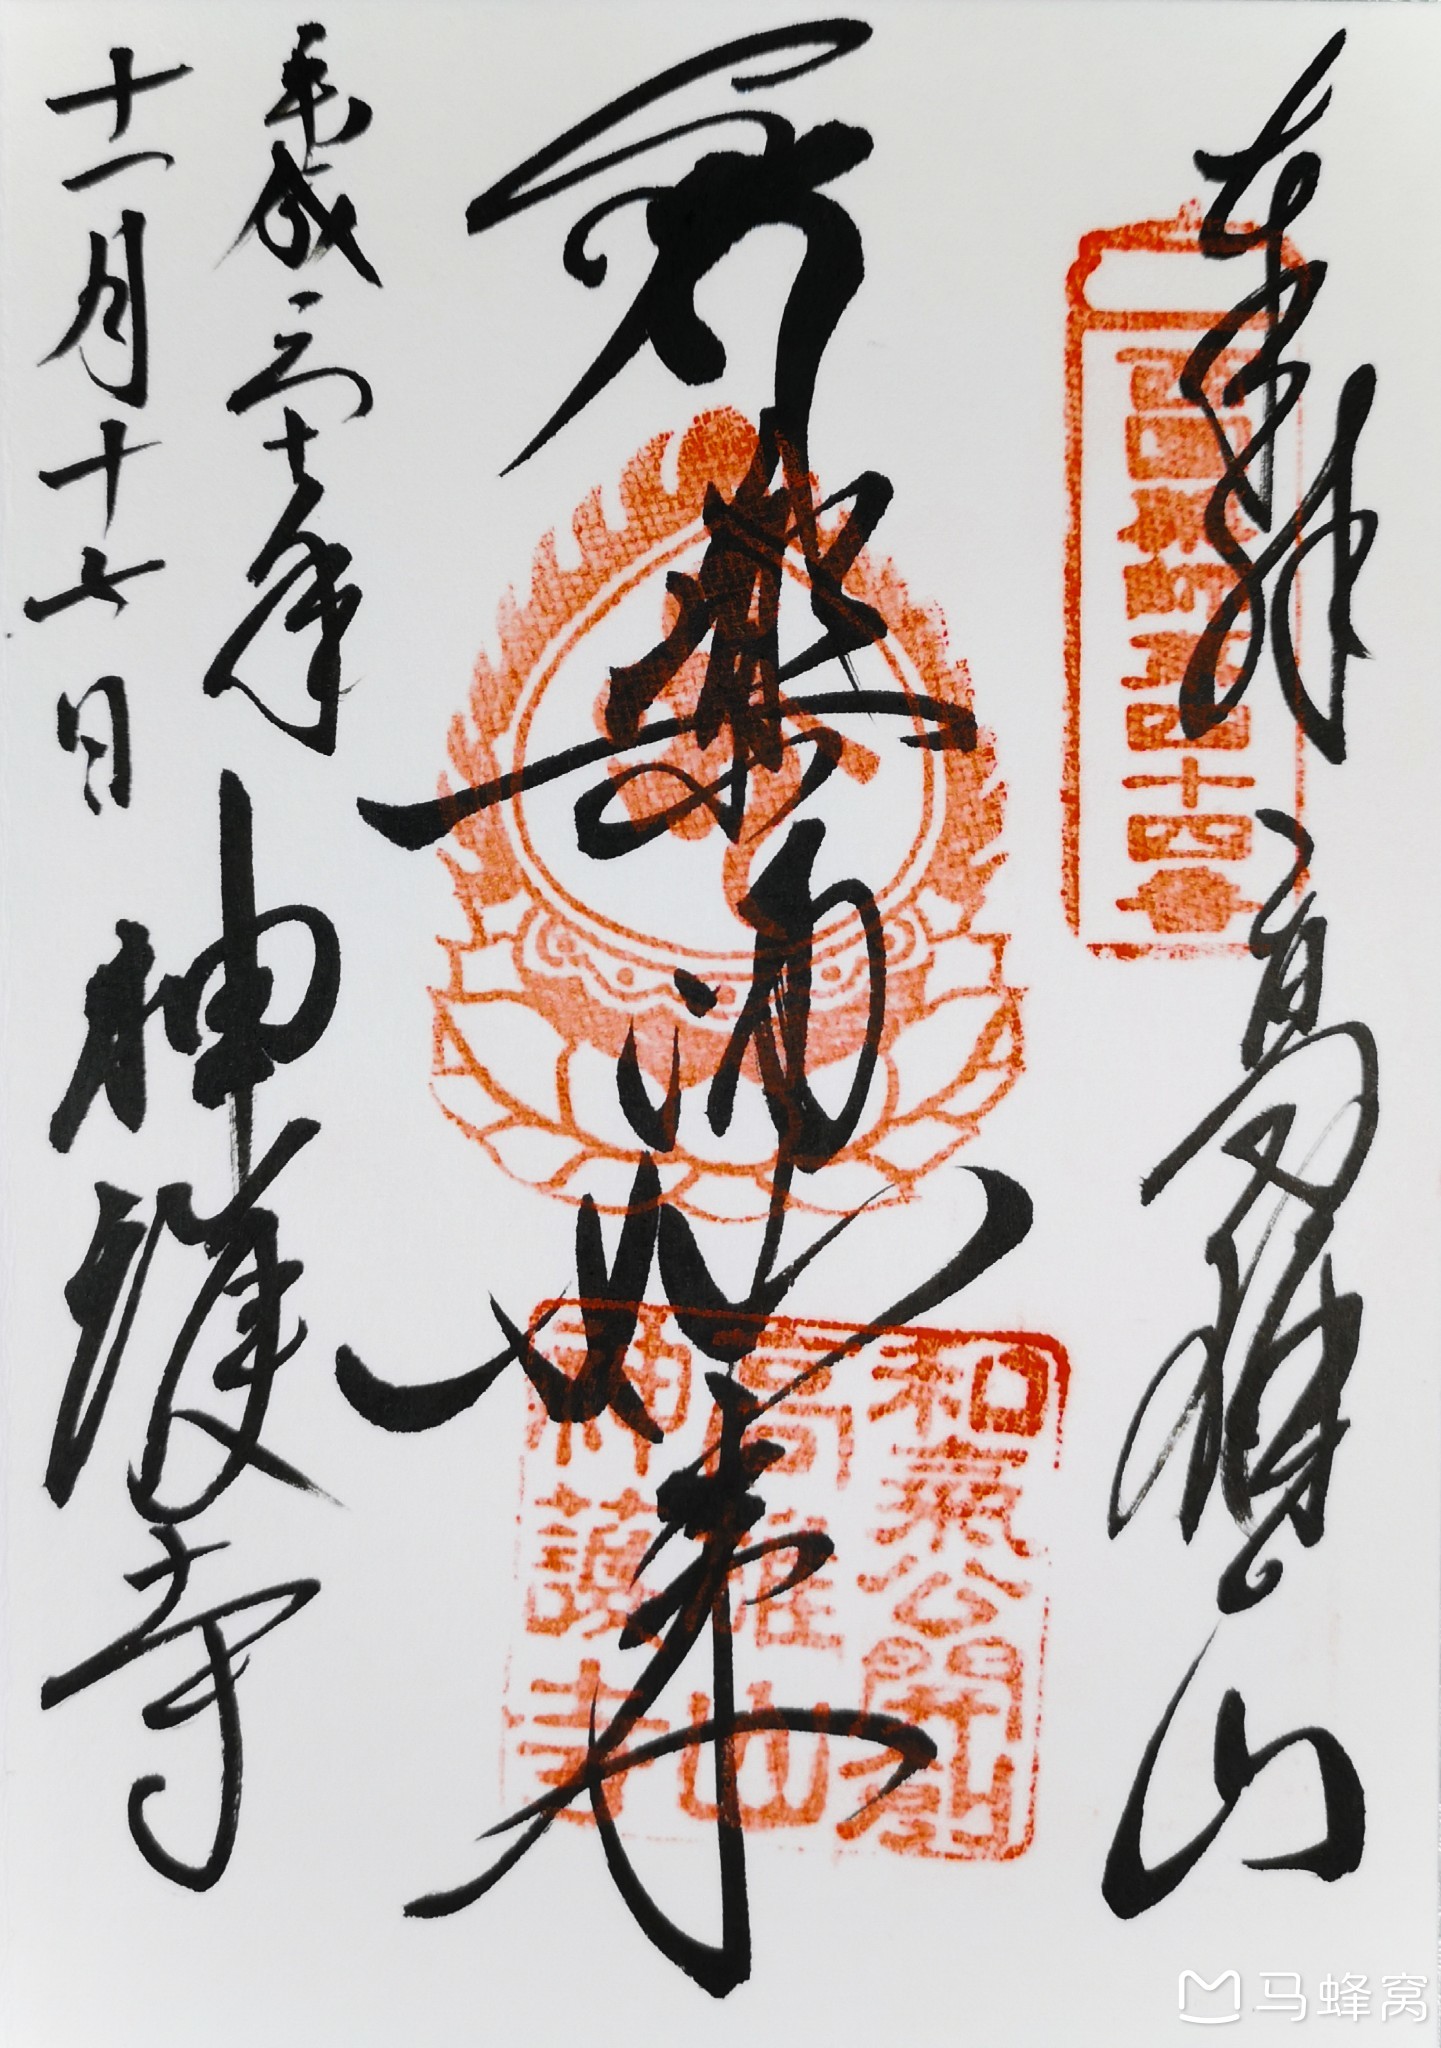 奉拝
高雄山
西国薬師第四十四番
薬師如来
和氣公開創
高雄山
神護寺
平成三十年
十一月十七日
神護寺
马蜂窝